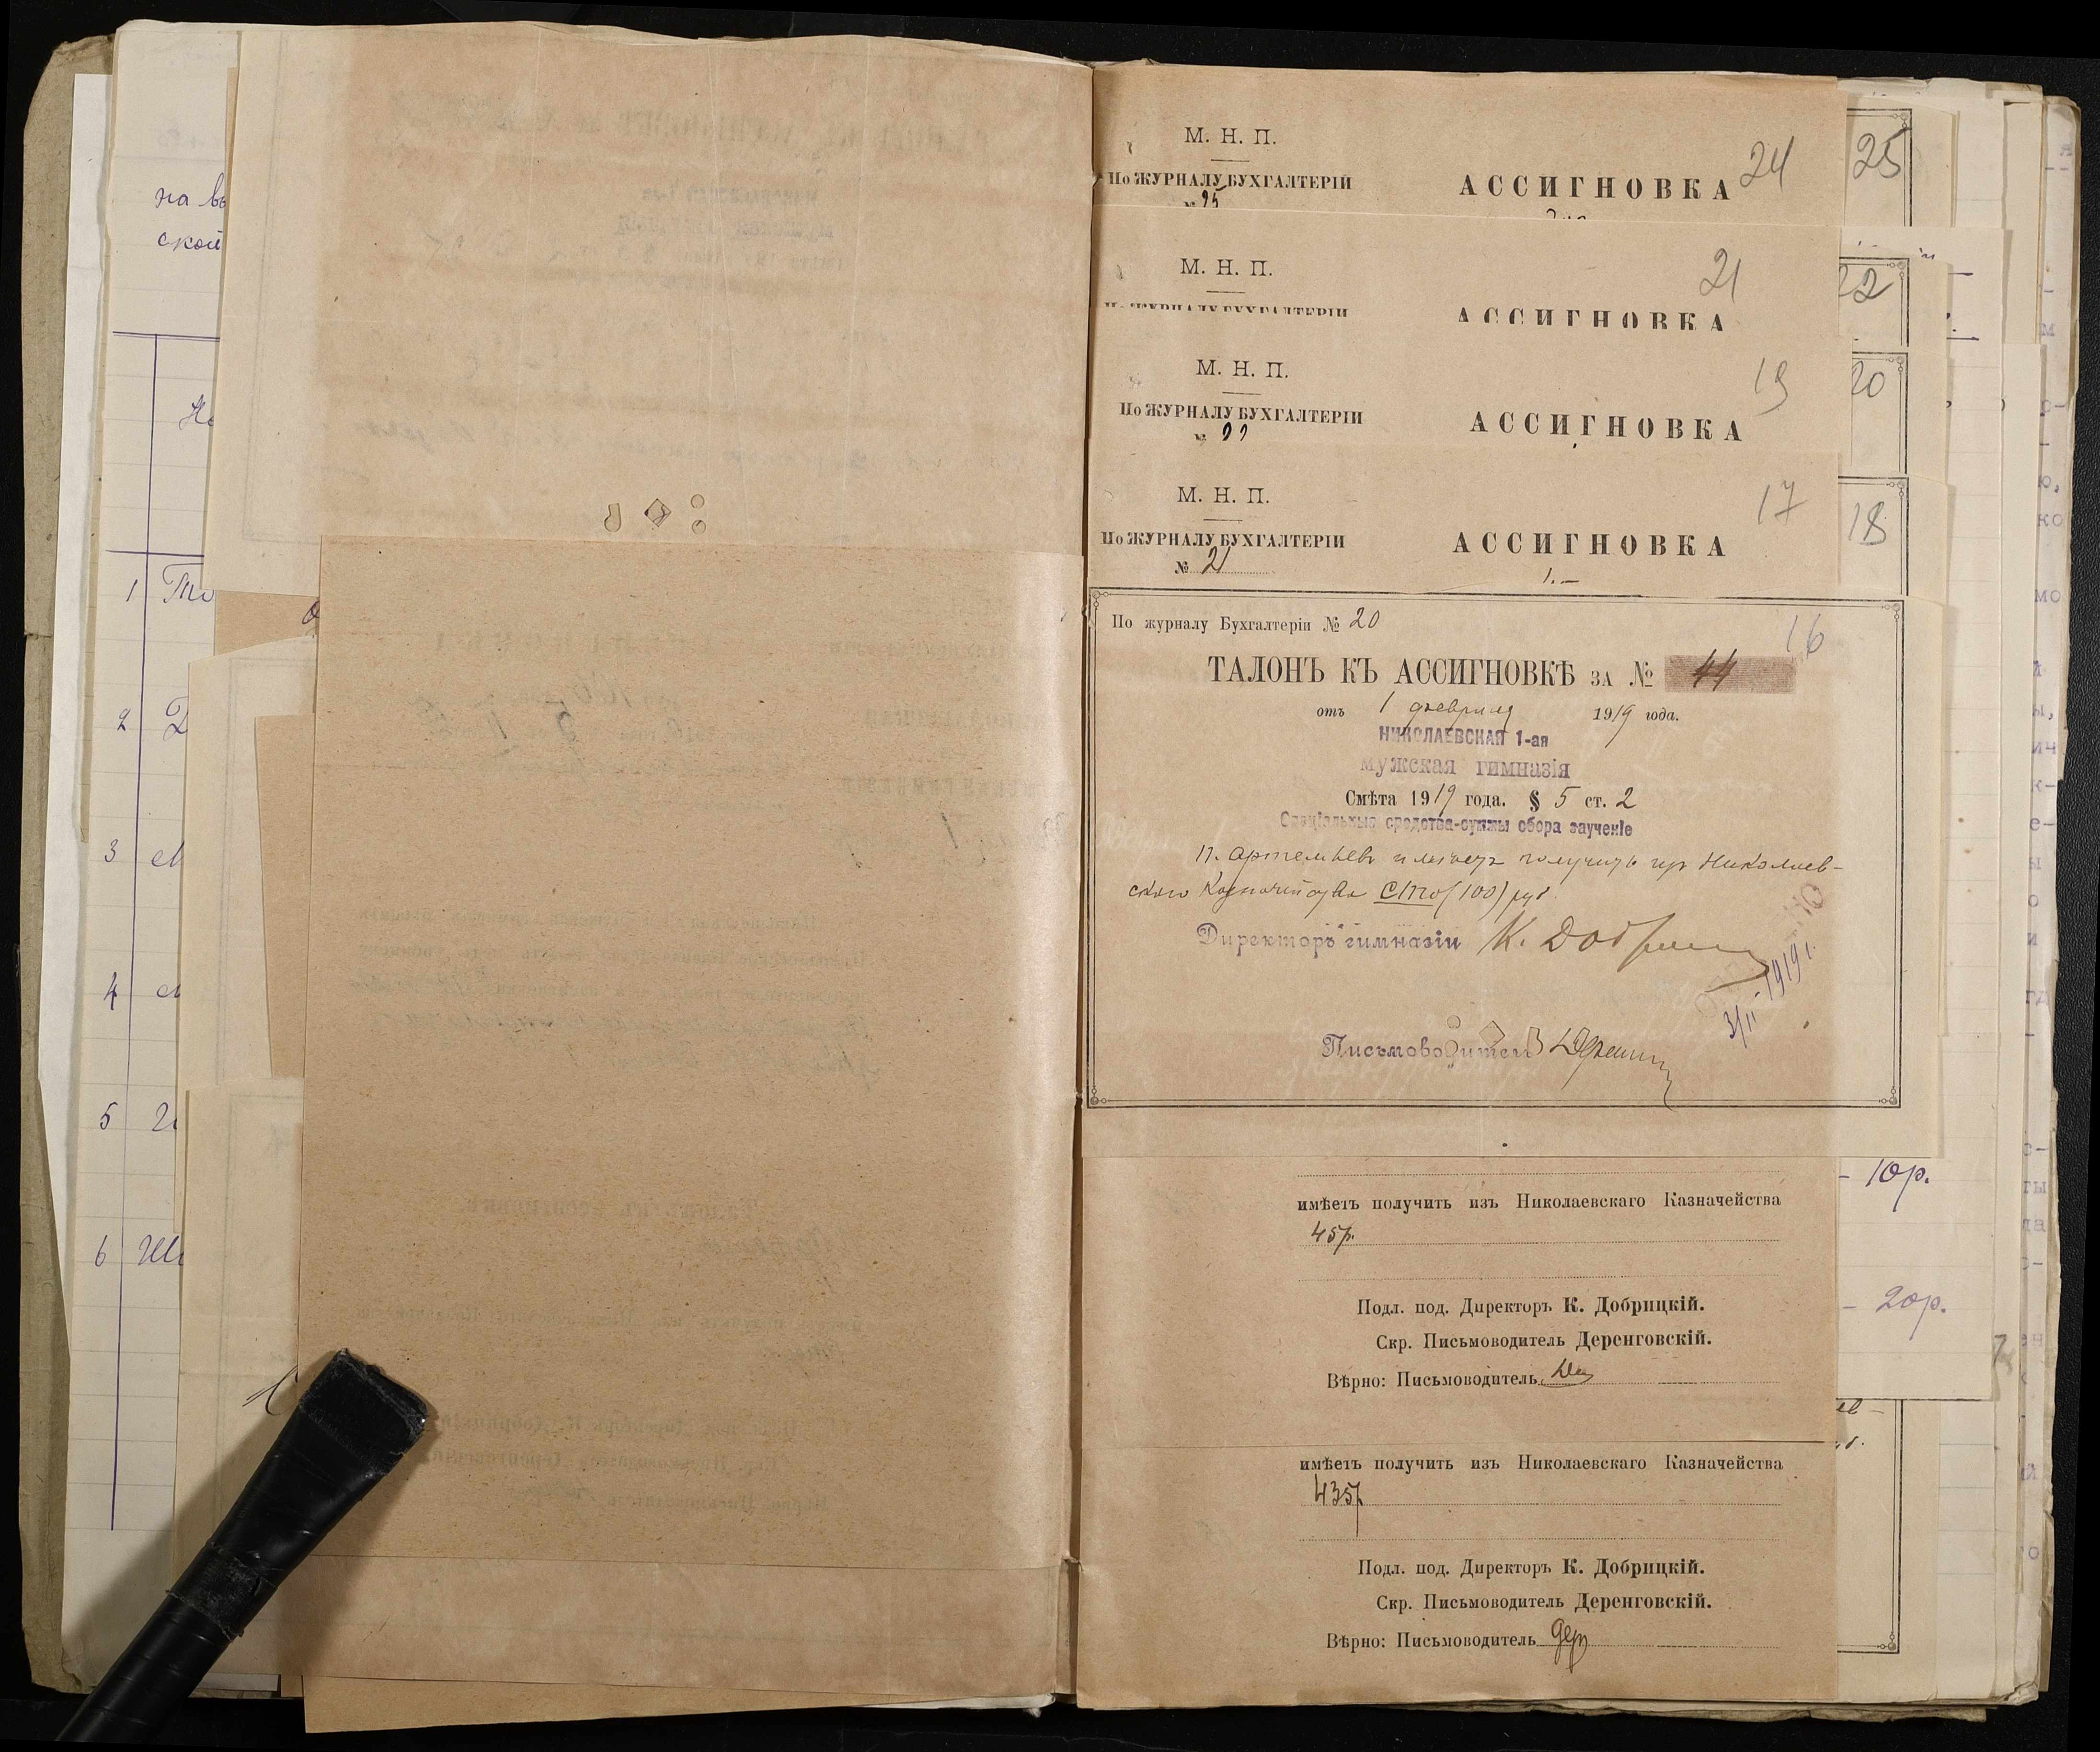 на вы
ской
1
2
3
4
5
6
М. Н. П.
24
25
По ЖУРНАЛУ БУХГАЛТЕРІИ
АССИГНОВКА
№ 25
М. Н. П.
21
22
По ЖУРНАЛУ БУХГАЛТЕРІИ
АССИГНОВКА
М. Н. П.
19
20
По ЖУРНАЛУ БУХГАЛТЕРІИ
АССИГНОВКА
№ 22
М. Н. П.
17
18
По ЖУРНАЛУ БУХГАЛТЕРІИ
АССИГНОВКА
№ 21
По журналу Бухгалтеріи № 20
16
ТАЛОНЪ КЪ АССИГНОВКѢ ЗА № 44
отъ 1 февраля 1919 года.
НИКОЛАЕВСКАЯ 1-ая
мужская гимназія
Смѣта 1919 года. § 5 ст. 2
Спеціальныя средства-суммы сбора заученіе
П. Артемьевъ имѣетъ получить изъ Николаев-
скаго Казначейства Сто (100) руб.
Директоръ гимназіи К.
3/II 1919 г.
Письмоводитель
10р.
имѣетъ получить изъ Николаевскаго Казначейства
45р.
20р.
Подл. под. Директоръ К. Добрицкій.
Скр. Письмоводитель Деренговскій.
Вѣрно: Письмоводитель
имѣетъ получить изъ Николаевскаго Казначейства
435р
Подл. под. Директоръ К. Добрицкій.
Скр. Письмоводитель Деренговскій.
Вѣрно: Письмоводитель